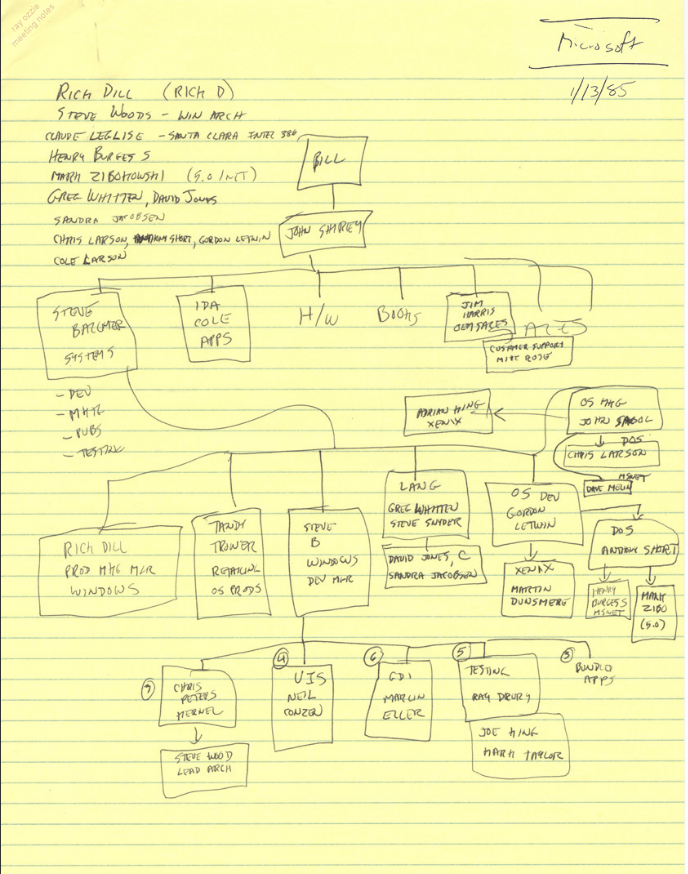 ray ozzie
meeting notes
Microsoft
1/13/85
RICH DILL (RICH D)
STEVE WOODS - WIN ARCH
CLAUDE LEGLISE - SANTA CLARA INTEL 386
HENRY BURGESS
MARK ZIBOKOWSKI (5.0/NET)
GREG WHITTEN, DAVID JONES
SANDRA JACOBSEN
CHRIS LARSON, ANTHONY SHORT, GORDON LETWIN
COLE LARSON
BILL
JOHN SHIRLEY
STEVE
BALLMER
SYSTEMS
- DEV
- MKTG
- PUBS
- TESTING
IDA
COLE
APPS
H/W
BOOKS
JIM
HARRIS
OEM SALES
SALES
CUSTOMER SUPPORT
MIKE
ADRIAN KING
XENIX
OS MKG
JOHN
DOS
CHRIS LARSON
MSNET
DAVE
RICH DILL
PROD MKG MGR
WINDOWS
TANDY
TROWER
RETAIL
OS PRODS
STEVE
B
WINDOWS
DEV MGR
LANG
GREG WHITTEN
STEVE SNYDER
DAVID JONES, C
SANDRA JACOBSEN
OS DEV
GORDON
LETWIN
XENIX
MARTIN
DUNSMERE
DOS
ANTHONY SHORT
HENRY
BURGESS
MSNET
MARK
ZIBO
(5.0)
CHRIS
PETERS
KERNEL
STEVE WOOD
LEAD ARCH
4
UIS
NEIL
KONZEN
6
GDI
MARLIN
ELLER
5
TESTING
RAY DRURY
JOE KING
MARK TAYLOR
3
BUNDLED
APPS